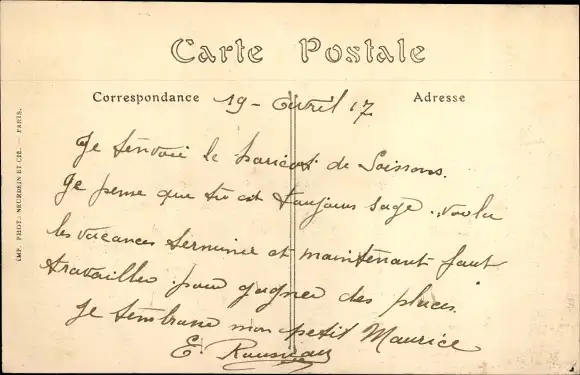 Carte Postale
Correspondance
19 - Avril 17
Adresse
Je t'envoie le haricot de Soissons.
Je pense que tu est toujours sage. voila
les vacances terminée et maintenant faut
travailler pour gagner des places.
Je t'embrasse mon petit Maurice
E. Rousseau
IMP. PHOT. NEURDEIN ET CIE. — PARIS.